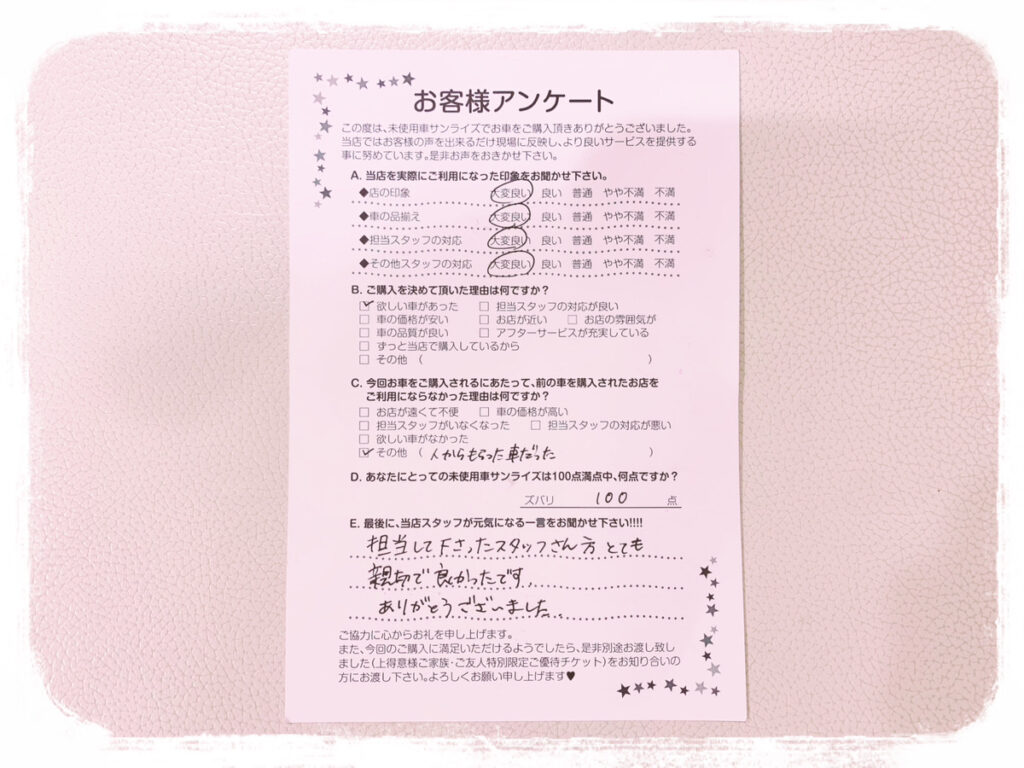 お客様アンケート
この度は、未使用車サンライズでお車をご購入頂きありがとうございました。
当店ではお客様の声を出来るだけ現場に反映し、より良いサービスを提供する
事に努めています。是非お声をおきかせ下さい。
A. 当店を実際にご利用になった印象をお聞かせ下さい。
◆店の印象 大変良い 良い 普通 やや不満 不満
◆車の品揃え 大変良い 良い 普通 やや不満 不満
◆担当スタッフの対応 大変良い 良い 普通 やや不満 不満
◆その他スタッフの対応 大変良い 良い 普通 やや不満 不満
B. ご購入を決めて頂いた理由は何ですか？
☑ 欲しい車があった □ 担当スタッフの対応が良い
□ 車の価格が安い □ お店が近い □ お店の雰囲気が
□ 車の品質が良い □ アフターサービスが充実している
□ ずっと当店で購入しているから
□ その他 （ ）
C. 今回お車をご購入されるにあたって、前の車を購入されたお店を
ご利用にならなかった理由は何ですか？
□ お店が遠くて不便 □ 車の価格が高い
□ 担当スタッフがいなくなった □ 担当スタッフの対応が悪い
□ 欲しい車がなかった
☑ その他 （ 人からもらった車だった ）
D. あなたにとっての未使用車サンライズは100点満点中、何点ですか？
ズバリ 100 点
E. 最後に、当店スタッフが元気になる一言をお聞かせ下さい!!!!
担当して下さったスタッフさん方 とても
親切で良かったです。
ありがとうございました。
ご協力に心からお礼を申し上げます。
また、今回のご購入に満足いただけるようでしたら、是非別途お渡し致し
ました（上得意様ご家族・ご友人特別限定ご優待チケット）をお知り合いの
方にお渡し下さい。よろしくお願い申し上げます♥